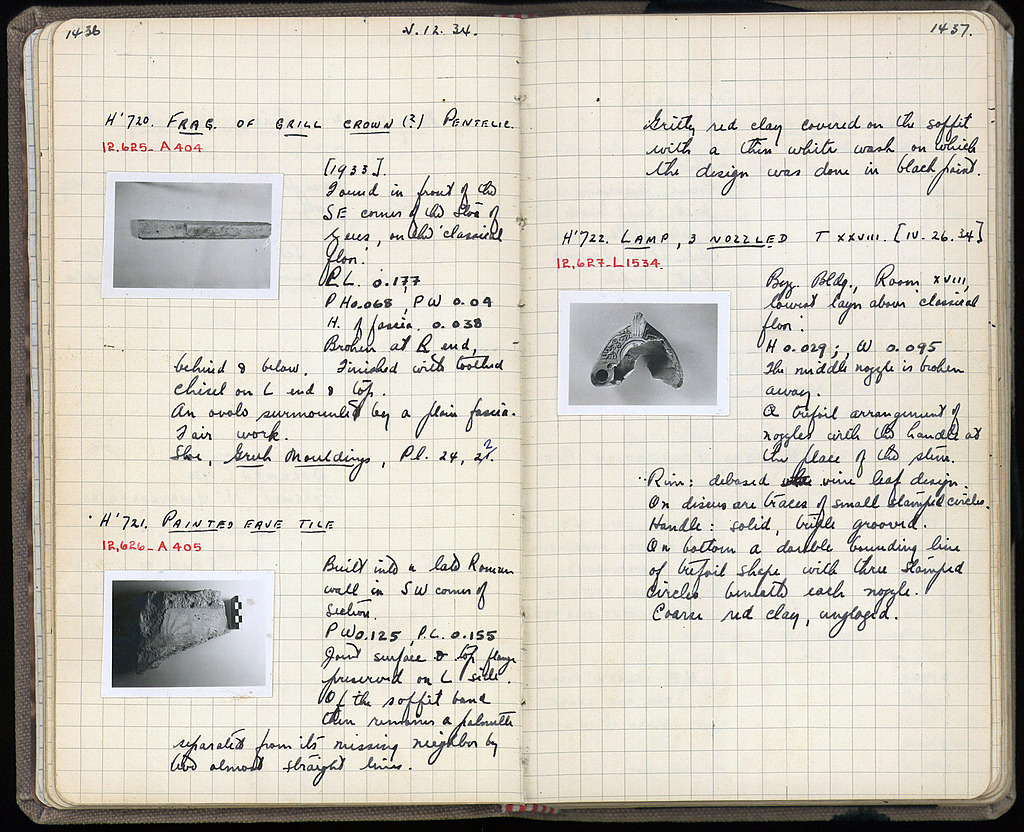 1436
V. 12. 34.
H'720. FRAG. OF GRILL CROWN (?) PENTELIC.
12,625 - A 404
[1933].
Found in front of the
SE corner of the Stoa of
Zeus, on the 'classical
floor.'
P.L. 0.177
P H 0.068, P W 0.09
H. of fascia. 0.038
Broken at R end,
behind & below. Finished with toothed
chisel on L end & top.
An ovolo surmounted by a plain fascia.
Fair work.
Shoe, Greek Mouldings, Pl. 24,
H'721. PAINTED EAVE TILE
12,626 - A 405
Built into a late Roman
wall in SW corner of
Section.
P W 0.125, P.L. 0.155
Joint surface & top flange
preserved on L side.
Of the soffit band
then remains a palmette
separated from its missing neighbor by
two almost straight lines.
1437.
Gritty red clay covered on the soffit
with a thin white wash on which
the design was done in black paint.
H'722. LAMP, 3 NOZZLED T XXVIII. [IV. 26. 34]
12,627 - L 1534.
Byz. Bldg., Room XVIII,
lowest layer above 'classical
floor.'
H 0.029; W 0.095
The middle nozzle is broken
away.
A trefoil arrangement of
nozzles with the handle at
the place of the stem.
Rim: debased vine leaf design.
On discus are traces of small stamped circles.
Handle: solid, triple grooved.
On bottom a double bounding line
of trefoil shape with three stamped
circles beneath each nozzle.
Coarse red clay, unglazed.